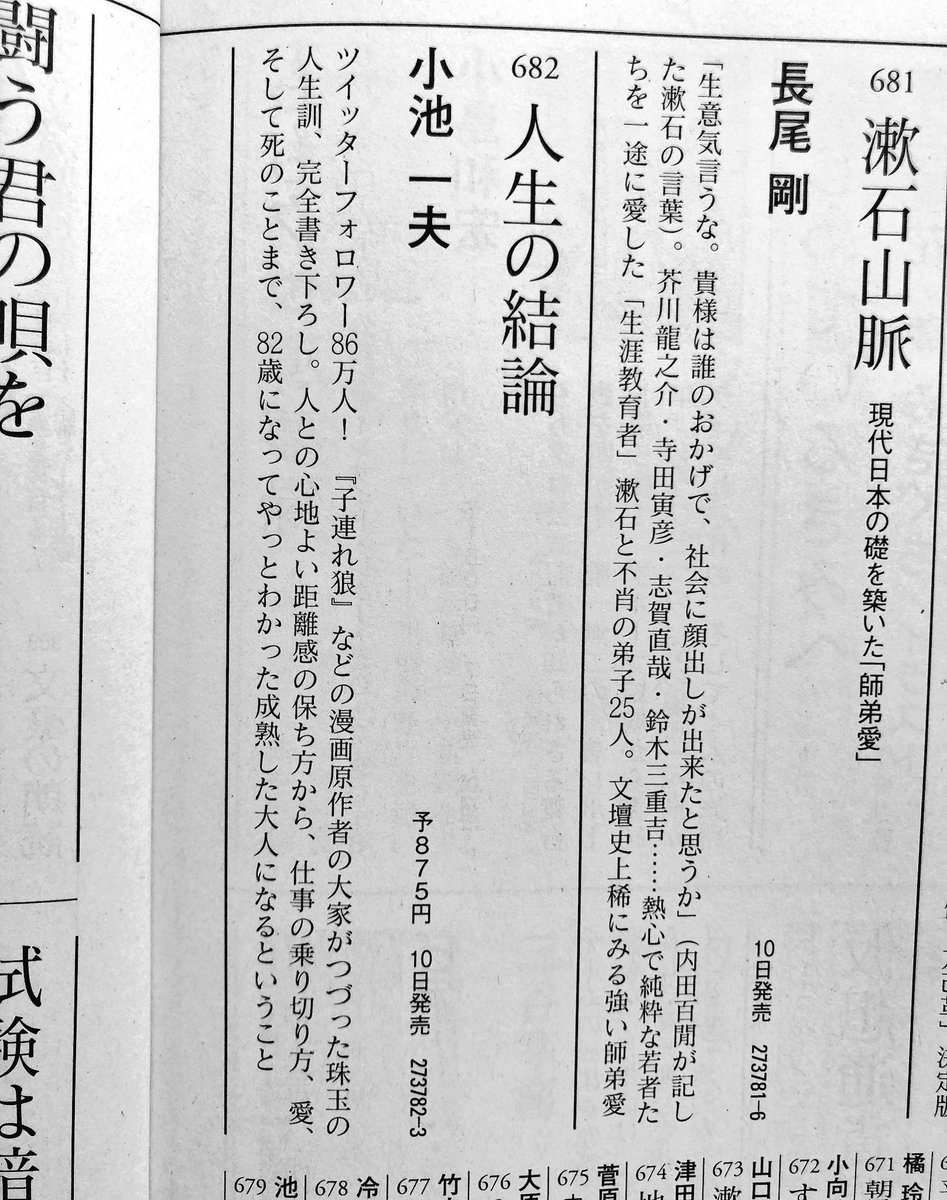 681 漱石山脈 現代日本の礎を築いた「師弟愛」
長尾 剛
10日発売 273781-6
「生意気言うな。貴様は誰のおかげで、社会に顔出しが出来たと思うか」(内田百閒が記し
た漱石の言葉)。芥川龍之介・寺田寅彦・志賀直哉・鈴木三重吉……熱心で純粋な若者た
ちを一途に愛した「生涯教育者」漱石と不肖の弟子25人。文壇史上稀にみる強い師弟愛
682 人生の結論
小池 一夫
予875円 10日発売 273782-3
ツイッターフォロワー86万人! 『子連れ狼』などの漫画原作者の大家がつづった珠玉の
人生訓、完全書き下ろし。人との心地よい距離感の保ち方から、仕事の乗り切り方、愛、
そして死のことまで、82歳になってやっとわかった成熟した大人になるということ
決定版
橘 玲
671 朝
小向
672 す
山口
673 漱
津田
674
菅原
675
大原
676
竹
677
冷
678
池
679
闘う君の唄を
試験は暗